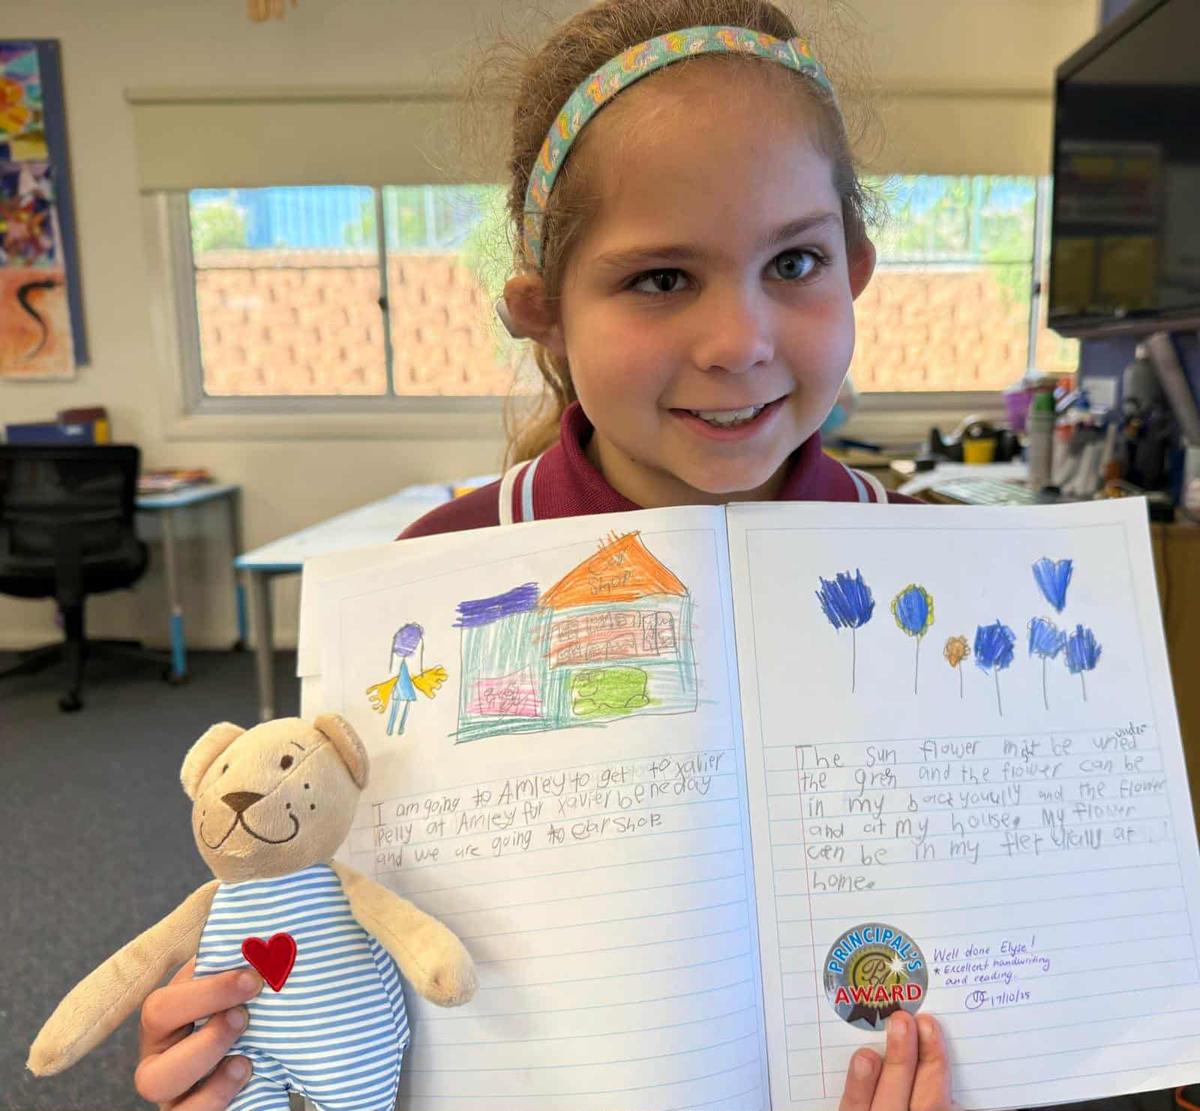 Car
Shop
I am going to Amley to get to xavier
Pelly at Amley for xavier be ne day
and we are going to ear shop
The sun flower mist be uned under
the gren and the flower can be
in my backyoully and the flower
and at my house. My flower
can be in my at
home.
PRINCIPAL'S
AWARD
Well done Elyse!
* Excellent handwriting
and reading.
17/10/25